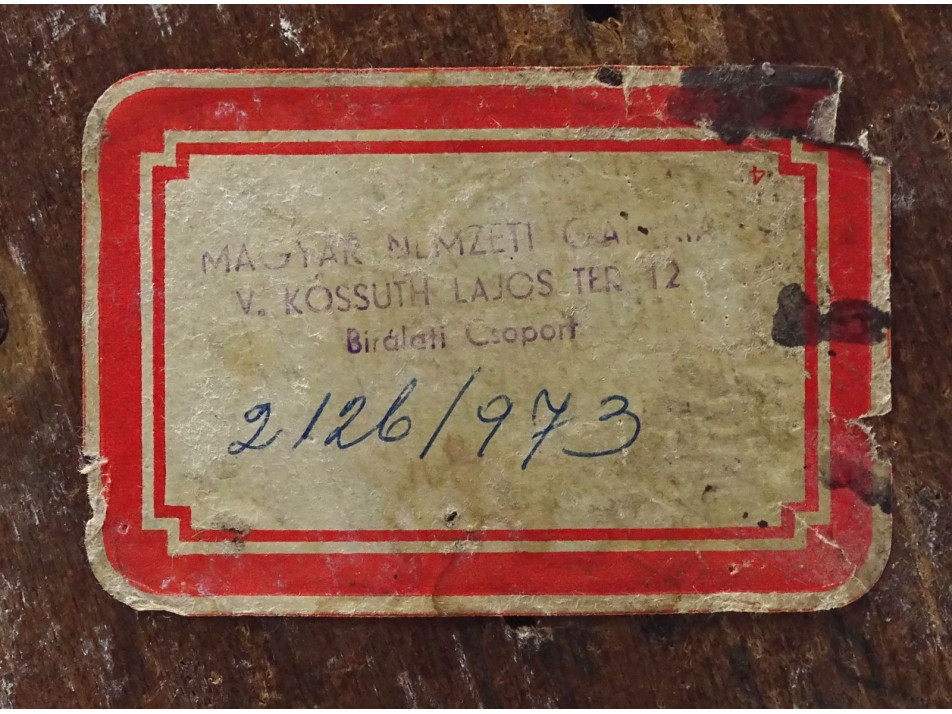 MAGYAR NEMZETI GALÉRIA
V. KOSSUTH LAJOS TÉR 12
Birálati Csoport
2126/973
4